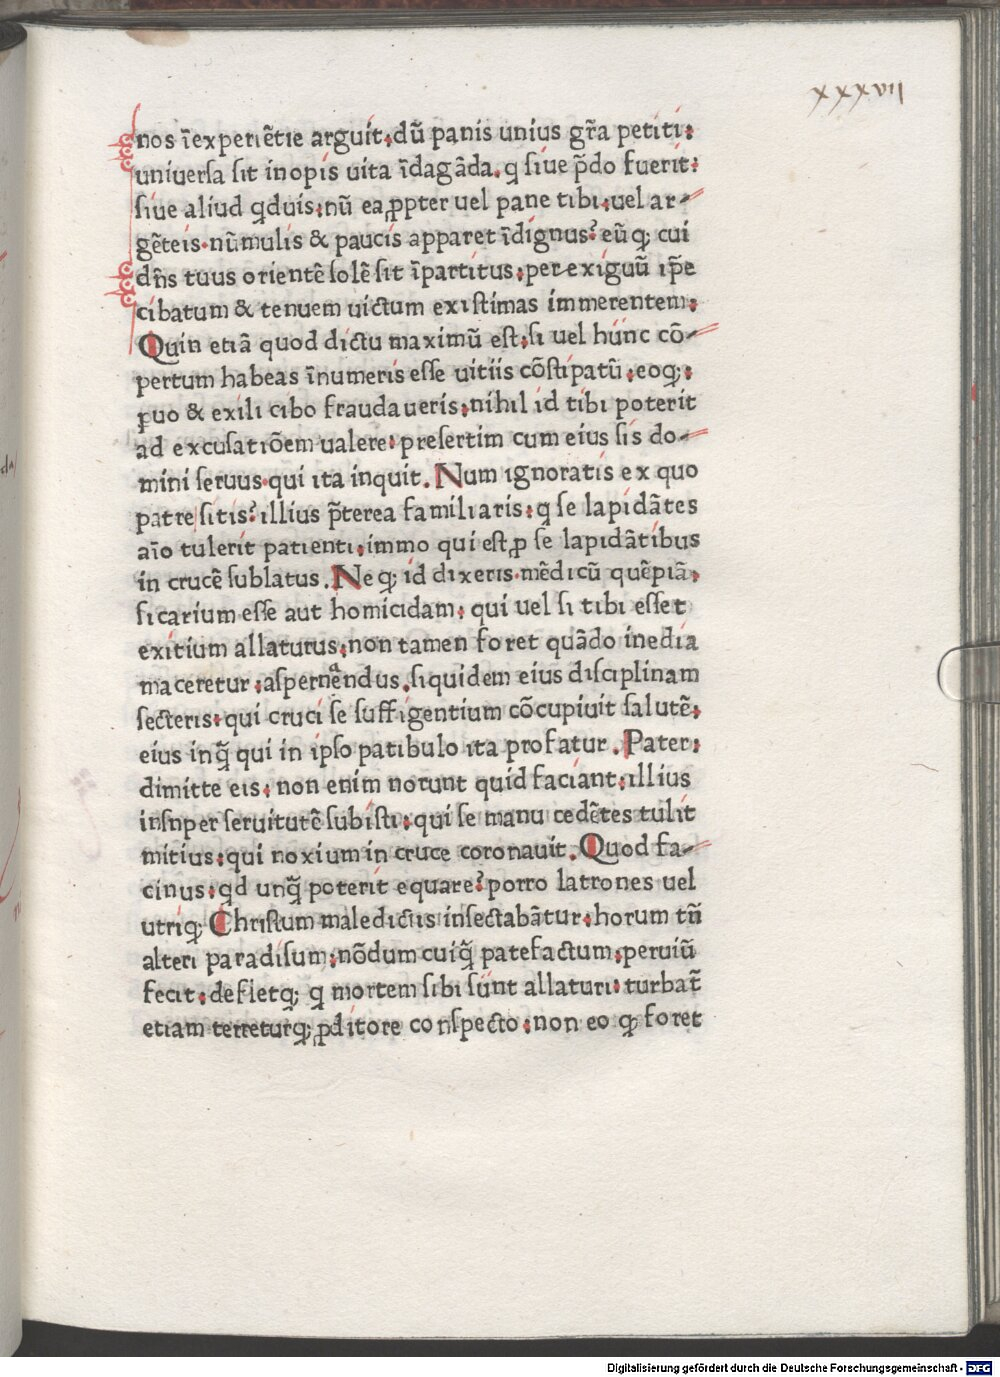 xxxvii
nos īexperiētie arguit: dū panis unius gr̄a petiti:
uniuersa sit inopis uita īdagāda. q siue p̄do fuerit:
siue aliud qduis: nū ea ꝓpter uel pane tibi: uel ar-
gēteis nūmulis & paucis apparet īdignus? eū qꝫ cui
dn̄s tuus orientē solē sit īpartitus: per exiguū ip̄e
cibatum & tenuem uictum existimas immerentem:
Quin etiā quod dictu maximū est: si uel hunc cō-
pertum habeas īnumeris esse uitiis cōstipatū: eoqꝫ:
ꝓuo & exili cibo fraudaueris: nihil id tibi poterit
ad excusatiōem ualere: presertim cum eius sis do-
mini seruus qui ita inquit. Num ignoratis ex quo
patre sitis? illius p̄terea familiaris: q se lapidātes
aīo tulerit patienti: immo qui est ꝓ se lapidātibus
in crucē sublatus. Neqꝫ id dixeris mēdicū quēpiā:
sicarium esse aut homicidam: qui uel si tibi esset
exitium allaturus: non tamen foret quādo inedia
maceretur: aspernēndus. siquidem eius disciplinam
secteris: qui cruci se suffigentium cōcupiuit salutē:
eius inq̄ qui in ipso patibulo ita profatur. Pater:
dimitte eis: non enim norunt quid faciant: illius
insnper seruitutē subisti: qui se manu cedētes tulit
mitius: qui noxium in cruce coronauit. Quod fa-
cinus: qd unq̄ poterit equare? porro latrones uel
utriqꝫ Christum maledictis insectabātur: horum tn̄
alteri paradisum: nōdum cuiq̄ patefactum: peruiū
fecit: defletqꝫ q mortem sibi sūnt allaturi: turbat̄
etiam terreturqꝫ ꝓditore conspecto: non eo qꝫ foret
Digitalisierung gefördert durch die Deutsche Forschungsgemeinschaft - DFG